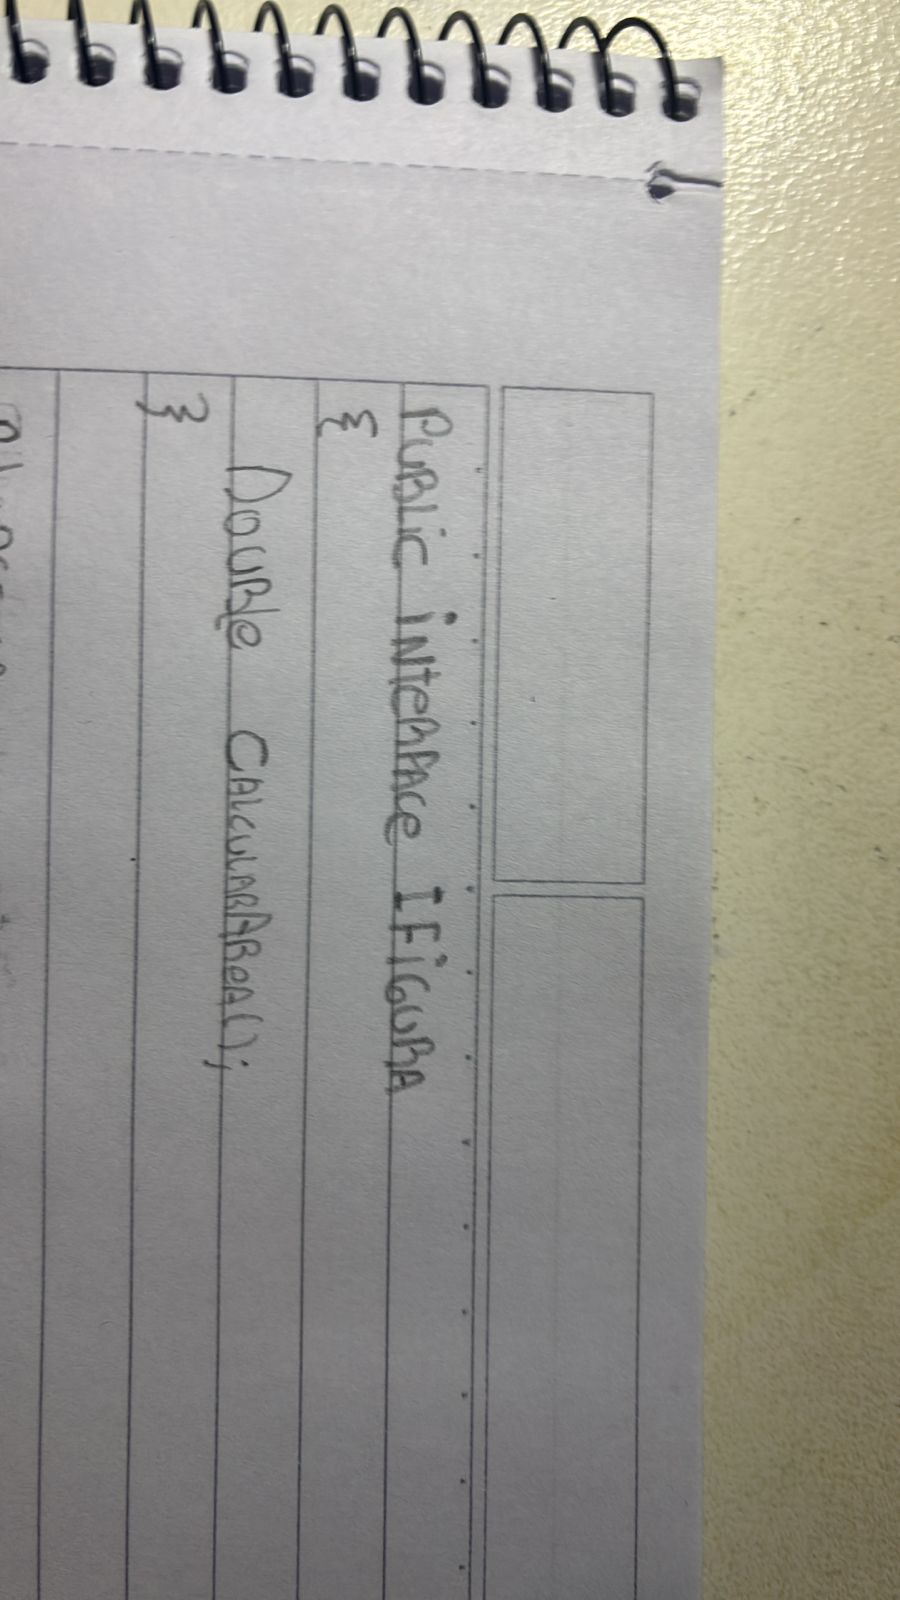 PUBLIC INTERFACE IFIGURA
{
DOUBLE CALCULARAREA();
}